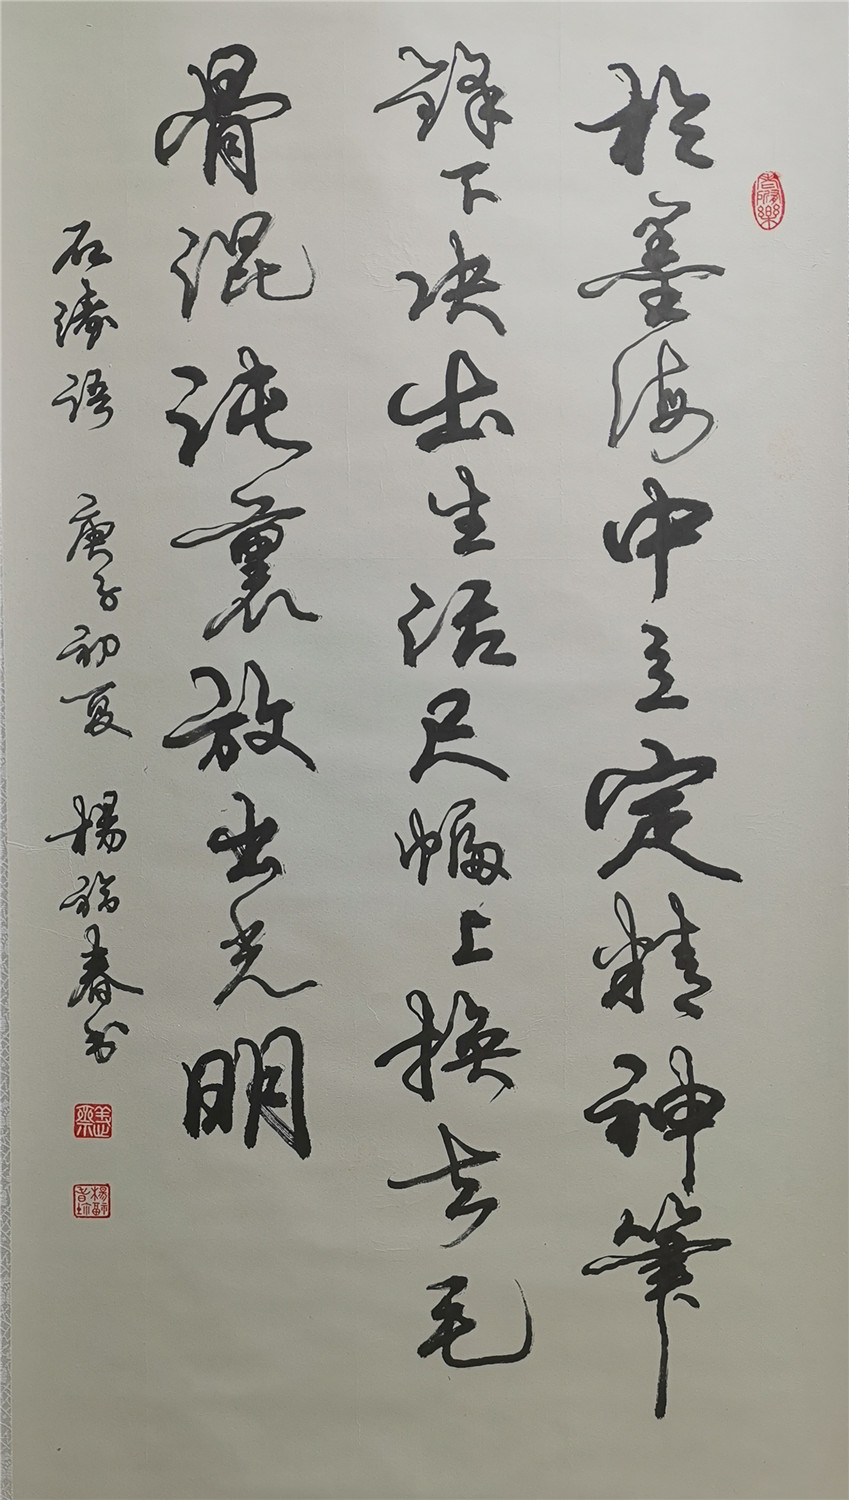 於墨海中立定精神筆
鋒下决出生活尺幅上換去毛
骨混沌裏放出光明
石濤語 庚子初夏 楊福春书